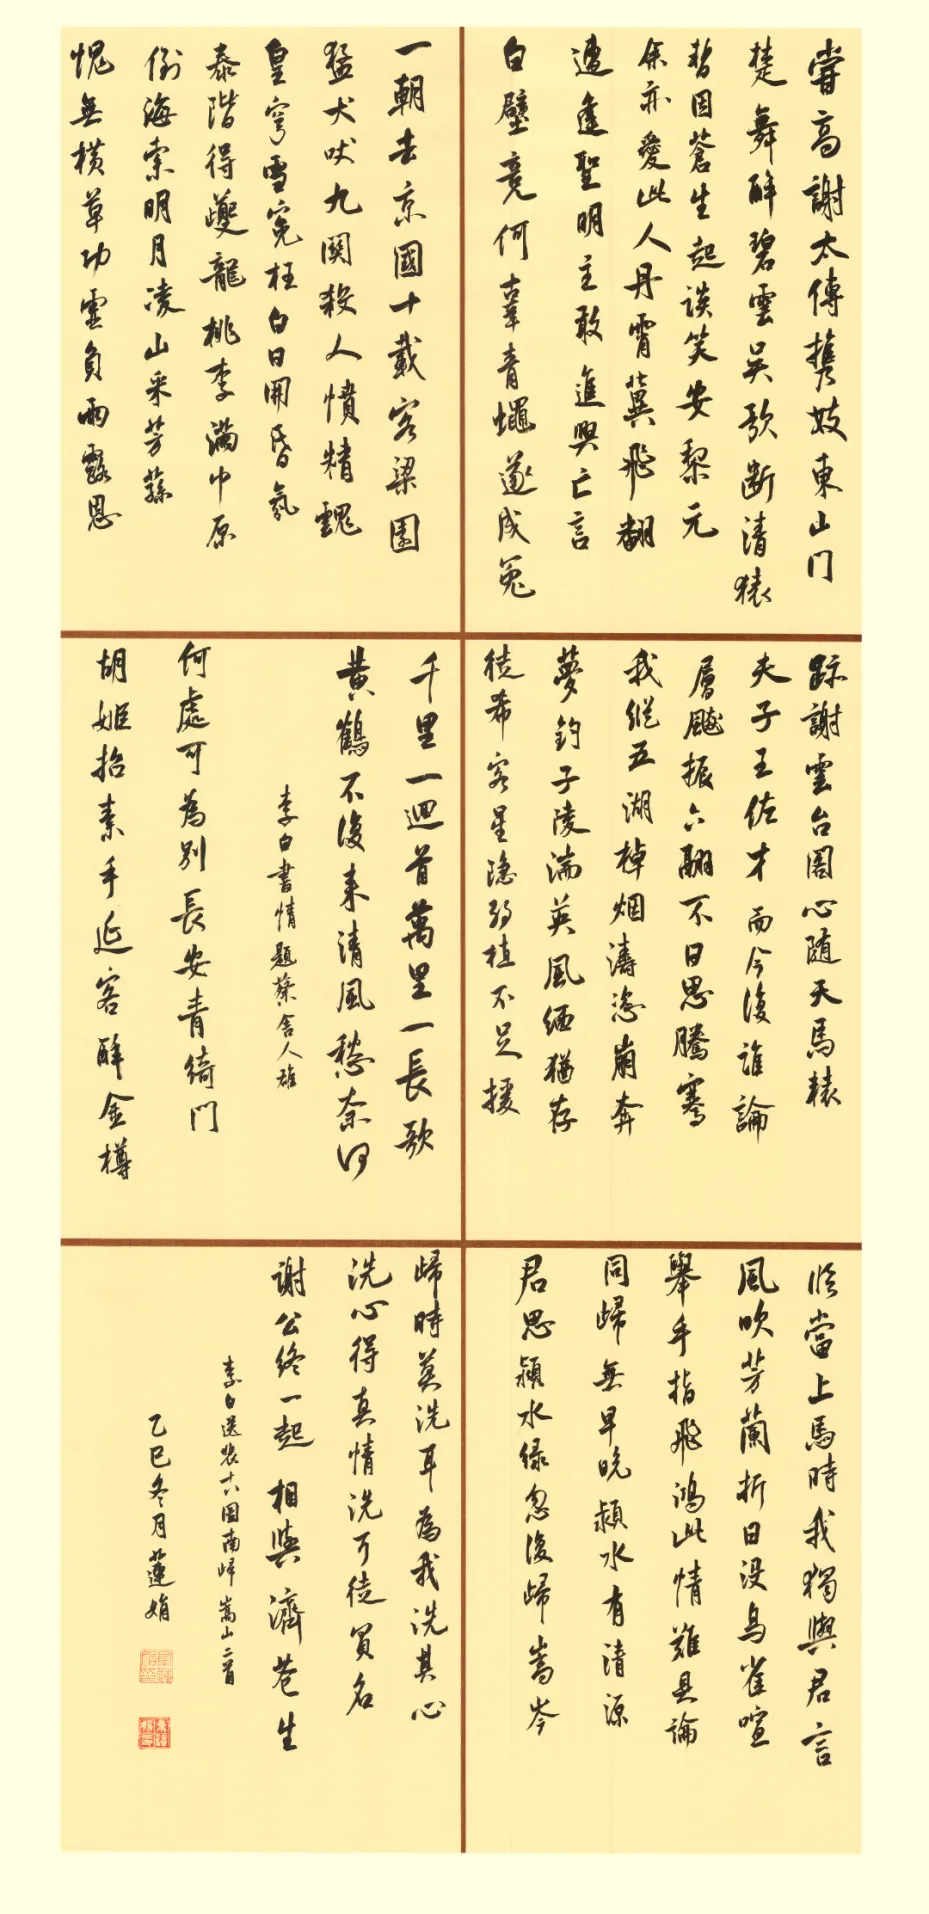 嘗高謝太傅携妓東山门
楚舞醉碧雲吴歌断清猿
暫因蒼生起谈笑安黎元
余亦愛此人丹霄冀飛翻
遭逢聖明主敢進興亡言
白璧竟何辜青蠅遂成冤
一朝去京國十載客梁園
猛犬吠九関殺人憤精魂
皇穹雪冤枉白日開昏氛
泰階得夔龍桃李滿中原
倒海索明月凌山采芳蓀
愧無横草功虚負雨露恩
跡謝雲台閣心随天馬轅
夫子王佐才而今復誰論
層飈振六翮不日思騰騫
我縱五湖棹烟濤恣崩奔
夢釣子陵湍英風缅猶存
徒希客星隐弱植不足援
千里一迴首萬里一長歌
黄鶴不復来清風愁奈何
李白書情題蔡舍人雄
何處可為别長安青绮门
胡姬招素手延客醉金樽
临當上馬時我獨與君言
風吹芳蘭折日没鳥雀喧
舉手指飛鴻此情難具論
同歸無早晚颍水有清源
君思颍水绿忽復歸嵩岑
歸時莫洗耳為我洗其心
洗心得真情洗耳徒買名
谢公终一起相與濟苍生
李白送裴十八图南歸嵩山二首
乙巳冬月蓮娟